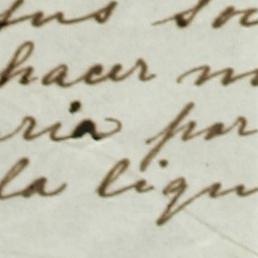 sus so
hacer m
ria por
la liqu